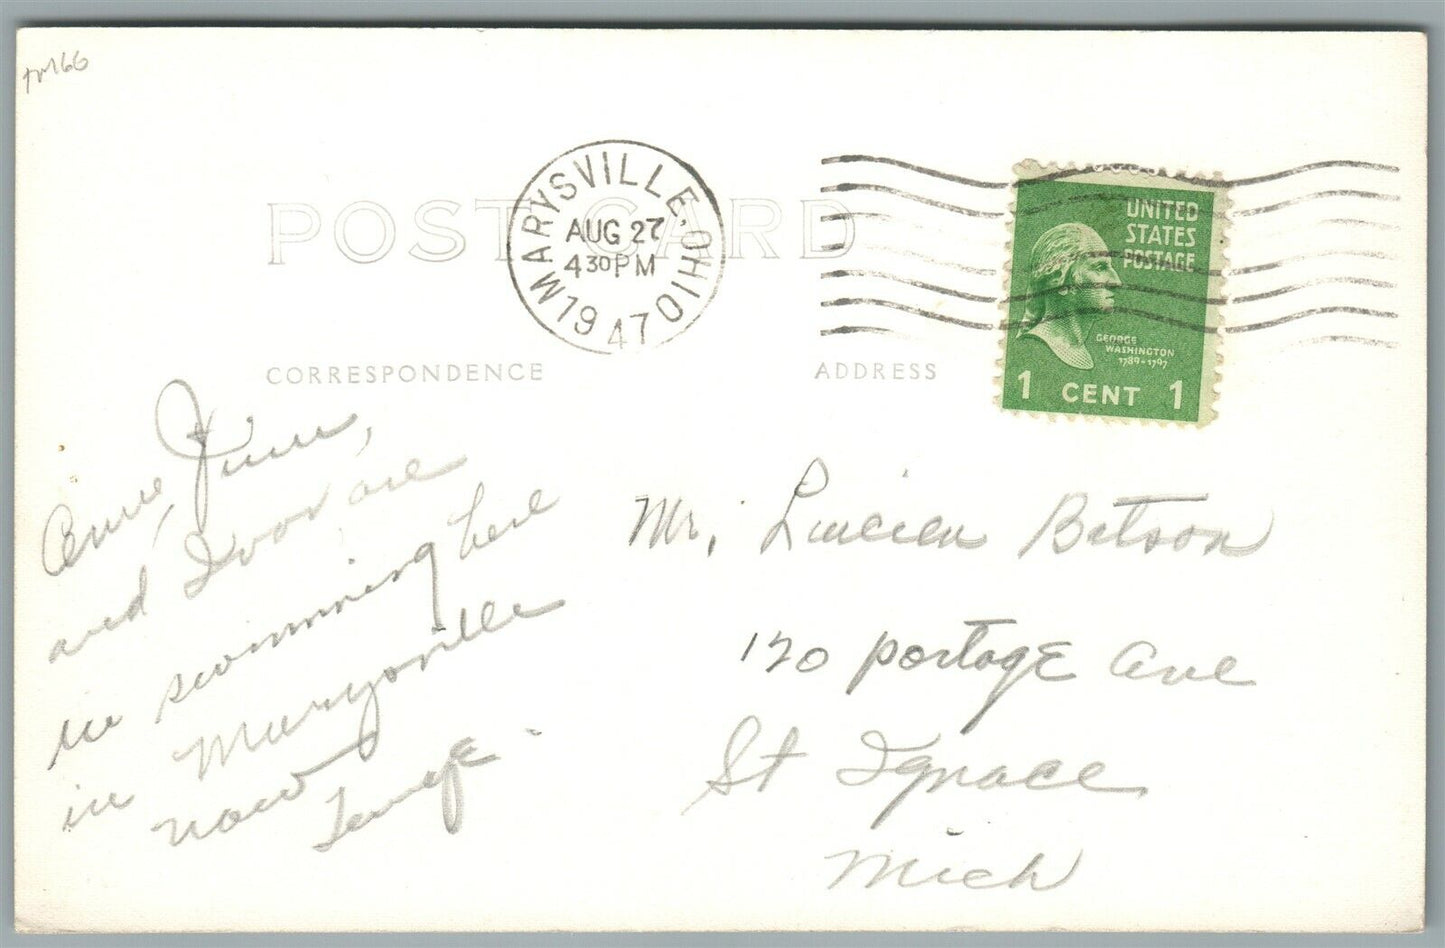 POST CARD
MARYSVILLE, OHIO
AUG 27
4 30 PM
1947
UNITED
STATES
POSTAGE
GEORGE
WASHINGTON
1789-1797
1 CENT 1
CORRESPONDENCE
ADDRESS
June,
and Ivor are
in swimming here
in Marysville
now
Mr. Lucien Betson
120 Portage Ave
St Ignace
Mich